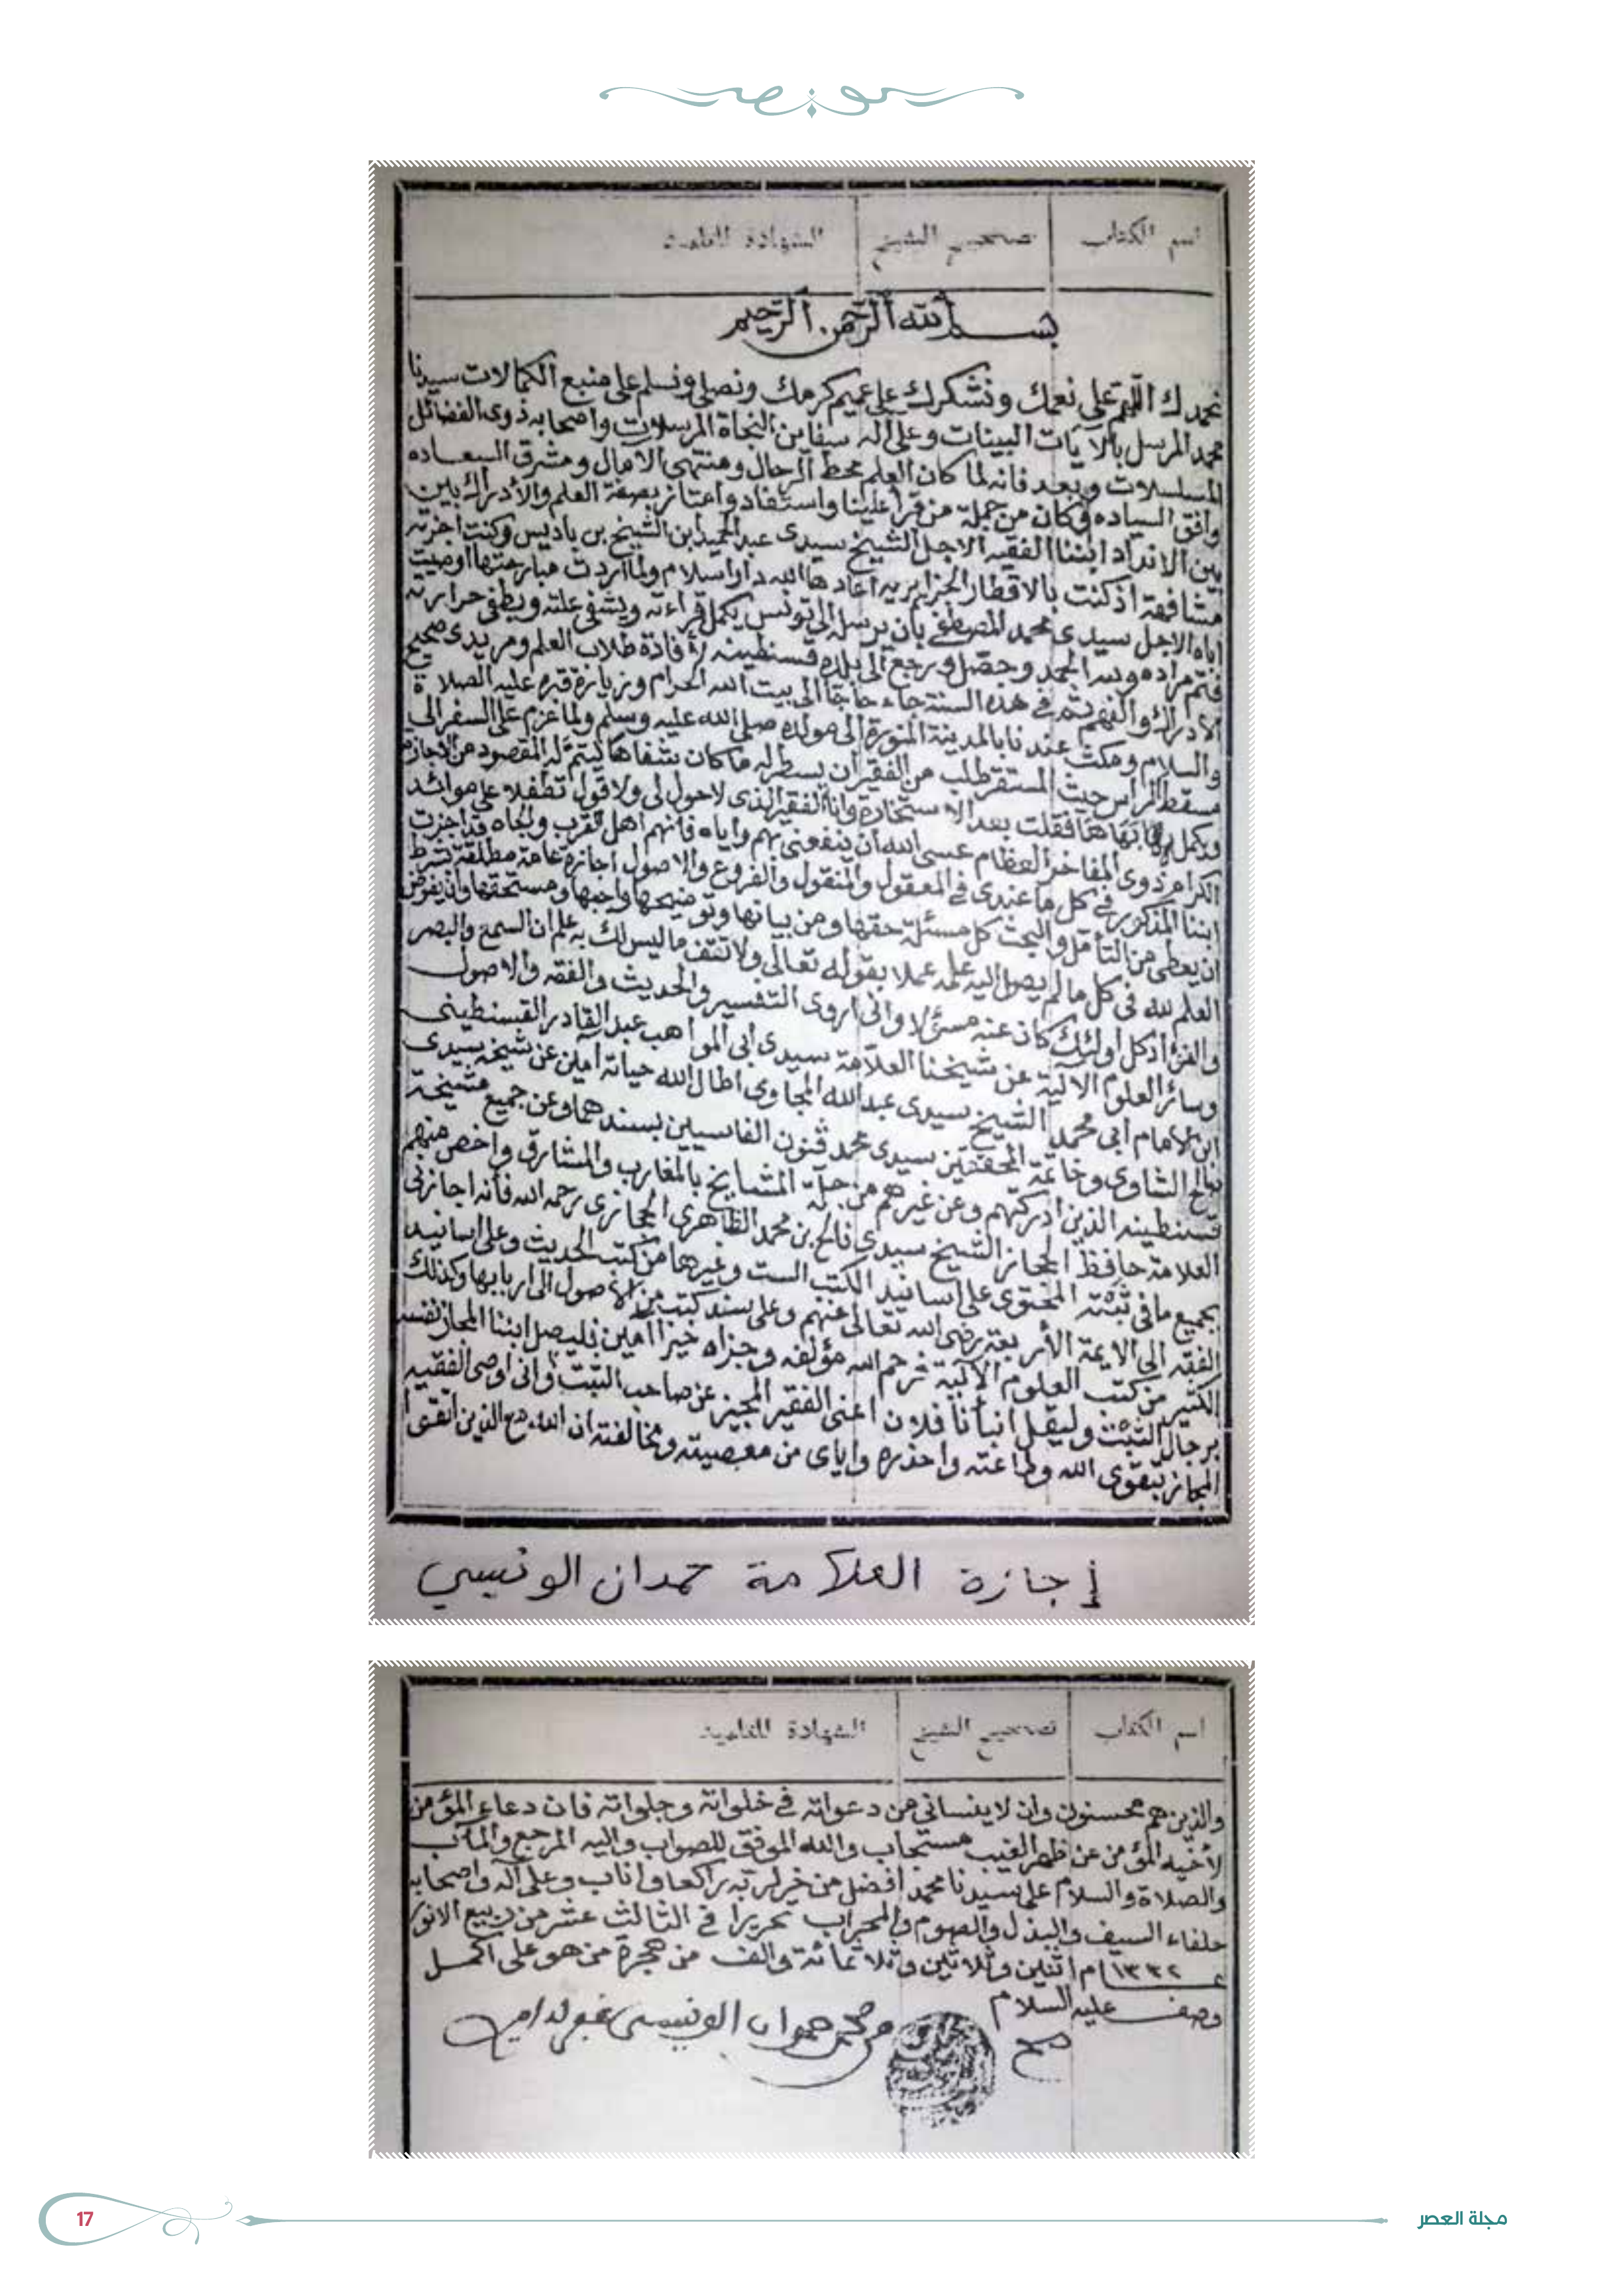 اسم الكتاب تصحيح الشيخ الشهادة للعلمية
بسم الله الرحمن الرحيم
نحمدك اللهم على نعمك ونشكرك على عميم كرمك ونصلي ونسلم على منبع الكمالات سيدنا
محمد المرسل بالآيات البينات وعلى اله سفاين النجاة المرسلات واصحابه ذوى الفضائل
المسلسلات وبعد فانه لما كان العلم محط الرحال ومنتهى الامال ومشرق السعاده
وافق السياده وكان من جملة من قرأ علينا واستفاد وامتاز بصفة العلم والأدراك بين
بين الانداد ابننا الفقيه الاجل الشيخ سيدى عبد الحميد ابن الشيخ بن باديس وكنت اجزته
مشافهة اذ كنت بالاقطار الجزايريه اعادها الله دار اسلام ولما اردت مبارحتها اوصيت
اباه الاجل سيدى محمد المصطفى بان يرسله الى تونس يكمل قراءته ويشفى غلته ويطفى حرارته
فتم مراده ولله الحمد وحصل ورجع الى بلده قسنطينه لافادة طلاب العلم ومريدى صحيح
الادراك والفهم ثم في هذه السنة جاء حاجا الى بيت الله الحرام وزيارة قبره عليه الصلاة
والسلام ومكث عندنا بالمدينة المنورة الى مولده صلى الله عليه وسلم ولما عزم على السفر الى
مسقط الرأس حيث المستقر طلب من الفقير ان يسطر له ما كان شفاها ليتم له المقصود من الاجازه
ويكمل فقلت بعد الاستخارة وانا الفقير الذى لاحول لى ولا قول تطفلا على موائد
الكرام ذوى المفاخر العظام عسى الله ان ينفعنى بهم واياه فانهم اهل القرب والجاه قد اجزت
ابننا المذكور في كل ما عندى في المعقول والمنقول والفروع والاصول اجازة عامة مطلقة بشرط
ان يعطى من التأمل والبحث كل مسئلة حقها ومن بيانها وتوضيحها واجبها ومستحقها وان يفوض
العلم لله فى كل ما لم يصل اليه علمه عملا بقوله تعالى ولا تقف ما ليس لك به علم ان السمع والبصر
والفؤاد كل اولئك كان عنه مسئولا وانى اروى التفسير والحديث والفقه والاصول
وسائر العلوم الالية عن شيخنا العلامة سيدى ابى المواهب عبد القادر القسنطينى
ابن الامام ابى محمد الشيخ سيدى عبد الله المجاوى اطال الله حياته آمين عن شيخه سيدى
صالح الشاوى وخاتمة المحققين سيدى محمد قنون الفاسيين بسندهما وعن جميع مشيخة
قسنطينه الذين ادركتهم وعن غيرهم من جلة المشايخ بالمغارب والمشارق واخص منهم
العلامة حافظ الحجاز الشيخ سيدى فالح بن محمد الظاهرى الحجازى رحمه الله فانه اجازنى
بجميع ما فى ثبته المحتوى على اسانيد الكتب الست وغيرها من كتب الحديث وعلى اسانيد
الفقه الى الايمة الأربعة رضى الله تعالى عنهم وعلى سند كتب من الأصول الى اربابها وكذلك
الكثير من كتب العلوم الآلية فرحم الله مؤلفه وجزاه خيرا آمين فليصل ابننا المجاز نفسه
برجال الثبت وليقل انبأنا فلان اعنى الفقير المجيز عن صاحب الثبت وانى اوصى الفقيه
المجاز بتقوى الله وطاعته واحذره واياى من معصيته ومخالفته ان الله مع الذين اتقوا
إجازة العلامة حمدان الونيسي
اسم الكتاب تصحيح الشيخ الشهادة للعلمية
والذين هم محسنون وان لا ينسانى من دعواته في خلواته وجلواته فان دعاء المؤمن
لأخيه المؤمن عن ظهر الغيب مستجاب والله الموفق للصواب واليه المرجع والمآب
والصلاة والسلام على سيدنا محمد افضل من خر لربه راكعا واناب وعلى آله واصحابه
حلفاء السيف والبذل والصوم والمحراب تحريرا في الثالث عشر من ربيع الانور
١٣٣٢ ام اثنين وثلاثين وثلاثمائة والف من هجرة من هو على اكمل
وصف عليه السلام
صح محمد حمدان الونيسى غفر له امين
17
مجلة العصر